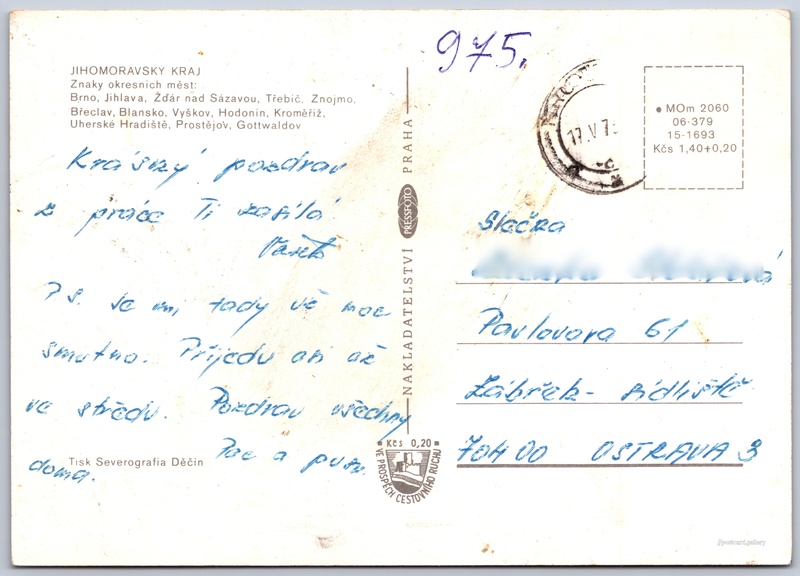 975.
JIHOMORAVSKY KRAJ
Znaky okresních měst:
Brno, Jihlava, Žďár nad Sázavou, Třebíč, Znojmo,
Břeclav, Blansko, Vyškov, Hodonín, Kroměříž,
Uherské Hradiště, Prostějov, Gottwaldov
Krásný pozdrav
z práce Ti zasílá
Vašek
P.S. Je mi tady vě moc
smutno. Přijedu ani až
ve středu. Pozdrav všechny
doma. Pac a pusu.
Tisk Severografia Děčín
NAKLADATELSTVÍ PRESSFOTO PRAHA
Kčs 0,20
VE PROSPĚCH CESTOVNÍHO RUCHU
17.V.7
MOm 2060
06-379
15-1693
Kčs 1,40+0,20
Slečna
Pavlovova 61
Zábřeh - sídliště
704 00 OSTRAVA 3
//postcard.gallery